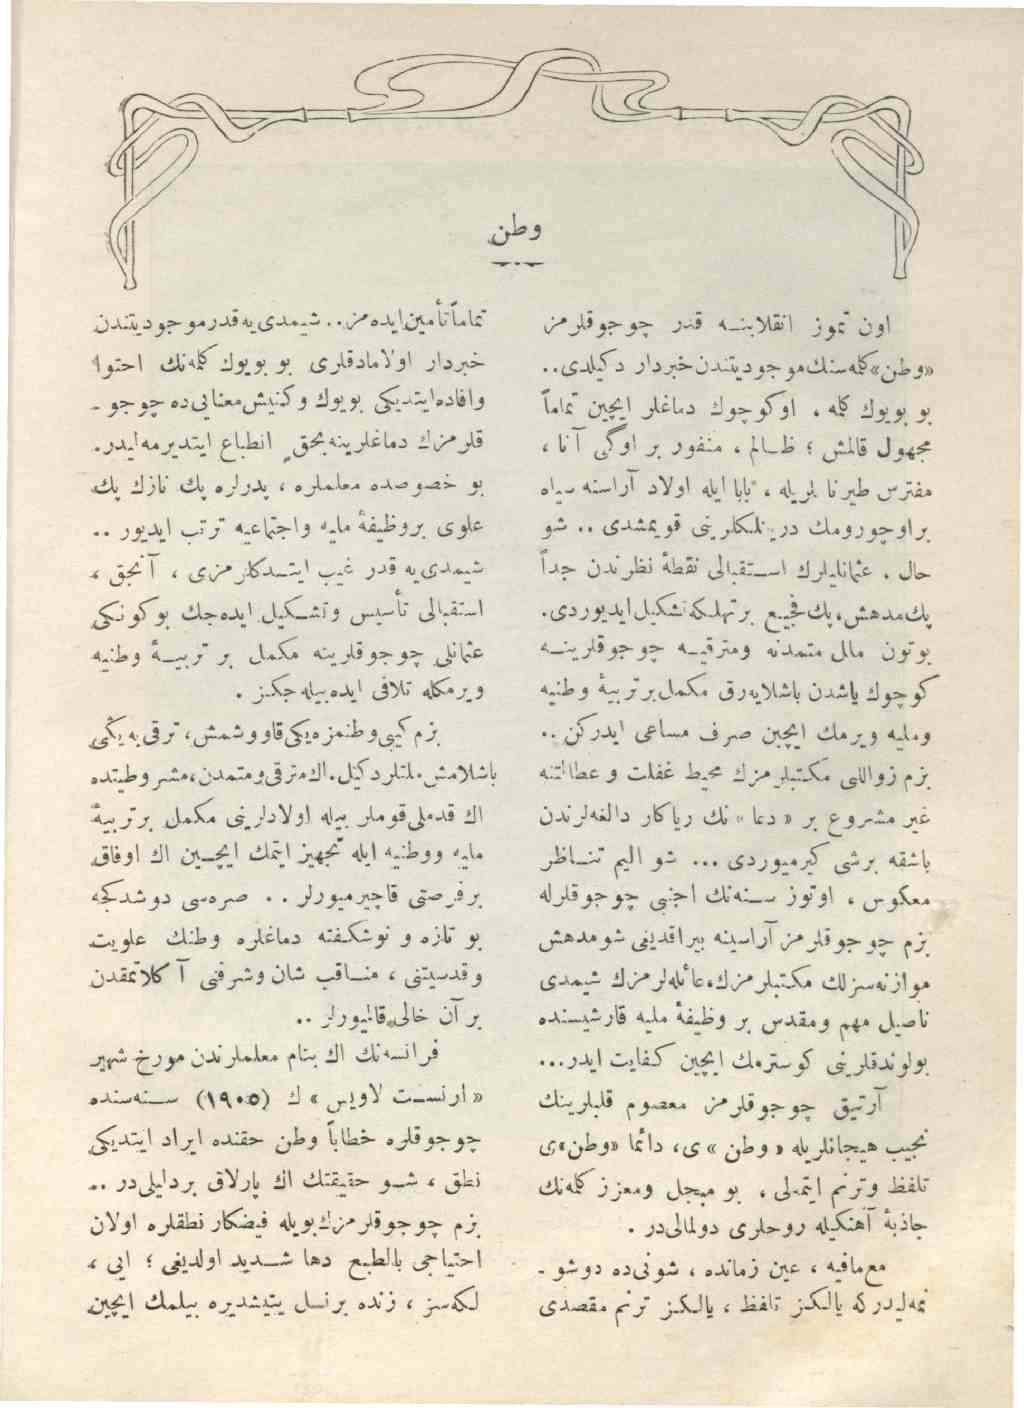 وطن
اون تموز انقلابنه قدر چوجوقلرمز
«وطن» كلمه‌سنك موجوديتندن خبردار دكيلدى..
بو بويوك كلمه، او كوچوك دماغلر ايچين تماماً
مجهول قالمش؛ ظالم، منفور بر اوگى آنا،
مفترس طيرناقلريله، بابا ايله اولاد آراسنه سياه
بر اوچورومك درينلكلرينى قويمشدى.. شو
حال، عثمانليلرك استقبالى نقطهٔ نظرندن جداً
پك مدهش، پك فجيع بر تهلكه تشكيل ايديوردى.
بوتون ملل متمدنه ومترقيه چوجوقلرينه
كوچوك ياشدن باشلايه‌رق مكمل بر تربيهٔ وطنيه
ومليه ويرمك ايچين صرف مساعى ايدركن..
بزم زواللى مكتبلرمزك محيط غفلت و عطالتنه
غير مشروع بر «دعا» نك رياكار دالغه‌لرندن
باشقه برشى كيرميوردى... شو اليم تناظر
معكوس، اوتوز سنه‌نك اجنبى چوجوقلرله
بزم چوجوقلرمز آراسينه بيراقديغى شو مدهش
موازنه‌سزلك مكتبلرمزك، عائله‌لرمزك شيمدى
ناصيل مهم ومقدس بر وظيفهٔ مليه قارشيسنده
بولوندقلرينى كوسترمك ايچين كفايت ايدر...
آرتيق چوجوقلرمز معصوم قلبلرينك
نجيب هيجانلريله «وطن» ى، دائما «وطن» ى
تلفظ وترنم ايتملى، بو مبجل ومعزز كلمه‌نك
جاذبهٔ آهنكيله روحلرى دولمالى‌در.
مع‌مافيه، عين زمانده، شونى‌ده دوشو ـ
نمه‌ليدركه يالكز تلفظ، يالكز ترنم مقصدى
تماماً تأمين ايده‌مز.. شيمدى‌يه قدر موجوديتندن
خبردار اولامادقلرى بو بويوك كلمه‌نك احتوا
وافاده ايتديكى بويوك وكنيش معنايى‌ده چوجو ـ
قلرمزك دماغلرينه بحق انطباع ايتديرمه‌ليدر.
بو خصوصده معلملره، پدرلره پك نازك پك
علوى بر وظيفهٔ مليه واجتماعيه ترتب ايديور..
شيمدى‌يه قدر غيب ايتدكلرمزى، آنجق،
استقبالى تأسيس وتشكيل ايده‌جك بوكونكى
عثمانلى چوجوقلرينه مكمل بر تربيهٔ وطنيه
ويرمكله تلافى ايده‌بيله‌جكز.
بزم كيبى وطنمزه يكى قاووشمش، ترقى‌يه يكى
باشلامش ملتلر دكيل، اك مترقى ومتمدن، مشروطيتده
اك قدملى قوملر بيله اولادلرينى مكمل بر تربيهٔ
مليه ووطنيه ايله تجهيز ايتمك ايچين اك اوفاق
بر فرصتى قاچيرميورلر.. صره‌سى دوشدكجه
بو تازه و نوشكفته دماغلره وطنك علويت
وقدسيتنى، مناقب شان وشرفنى آكلاتمقدن
بر آن خالى قالميورلر..
فرانسه‌نك اك بنام معلملرندن مورخ شهير
«ارنست لاويس» ك (۱۹۰۵) سنه‌سنده
چوجوقلره خطاباً وطن حقنده ايراد ايتديكى
نطق، شو حقيقتك اك پارلاق بر دليلى‌در..
بزم چوجوقلرمزك بويله فيضكار نطقلره اولان
احتياجى بالطبع دها شديد اولديغى؛ ايى،
لكه‌سز، زنده بر نسل يتيشديره بيلمك ايچين